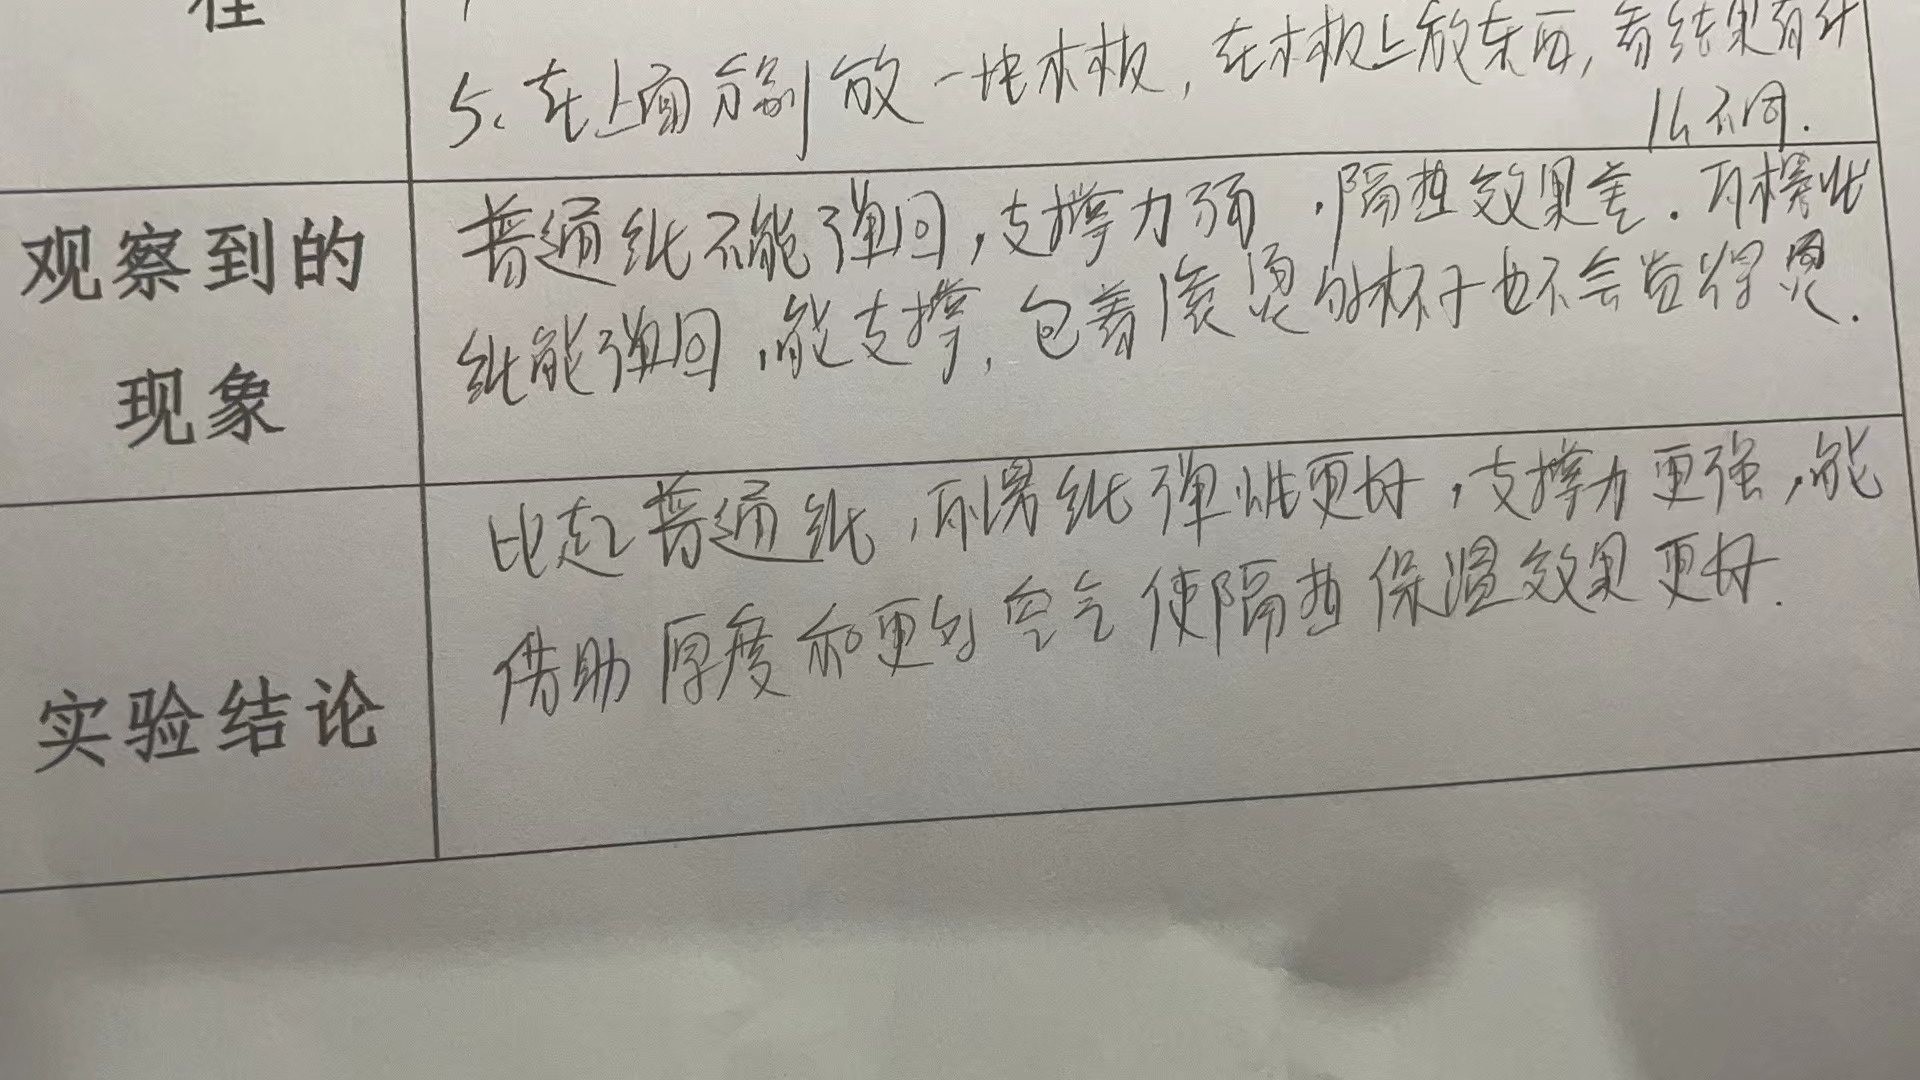 程
5、在上面分别放一块木板，在木板上放东西，看结果有什
么不同.
观察到的
现象
普通纸不能弹回，支撑力弱，隔热效果差.瓦楞
纸能弹回，能支撑，包着滚烫的杯子也不会觉得烫.
实验结论
比起普通纸，瓦楞纸弹性更好，支撑力更强，能
借助厚度和更多空气使隔热保温效果更好.